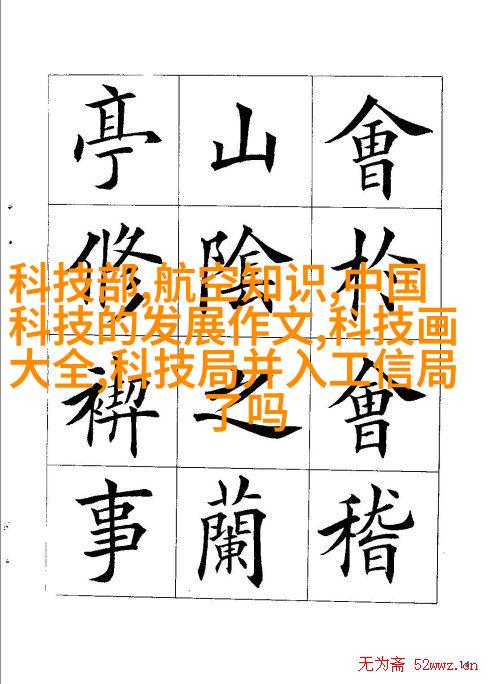 會扵會稽
山陰之蘭
亭修禊事
科技部,航空知识,中国
科技的发展作文,科技画
大全,科技局并入工信局
了吗
无为斋 52wwz.cn